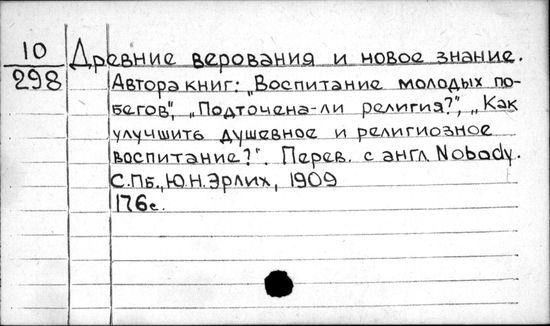 10
298
Древние верования и новое знание.
Автора книг: „Воспитание молодых по-
бегов", „Подточена-ли религия?", „Как
улучшить душевное и религиозное
воспитание?". Перев. с англ Nobody.
С.Пб., Ю.Н.Эрлих, 1909
176с.